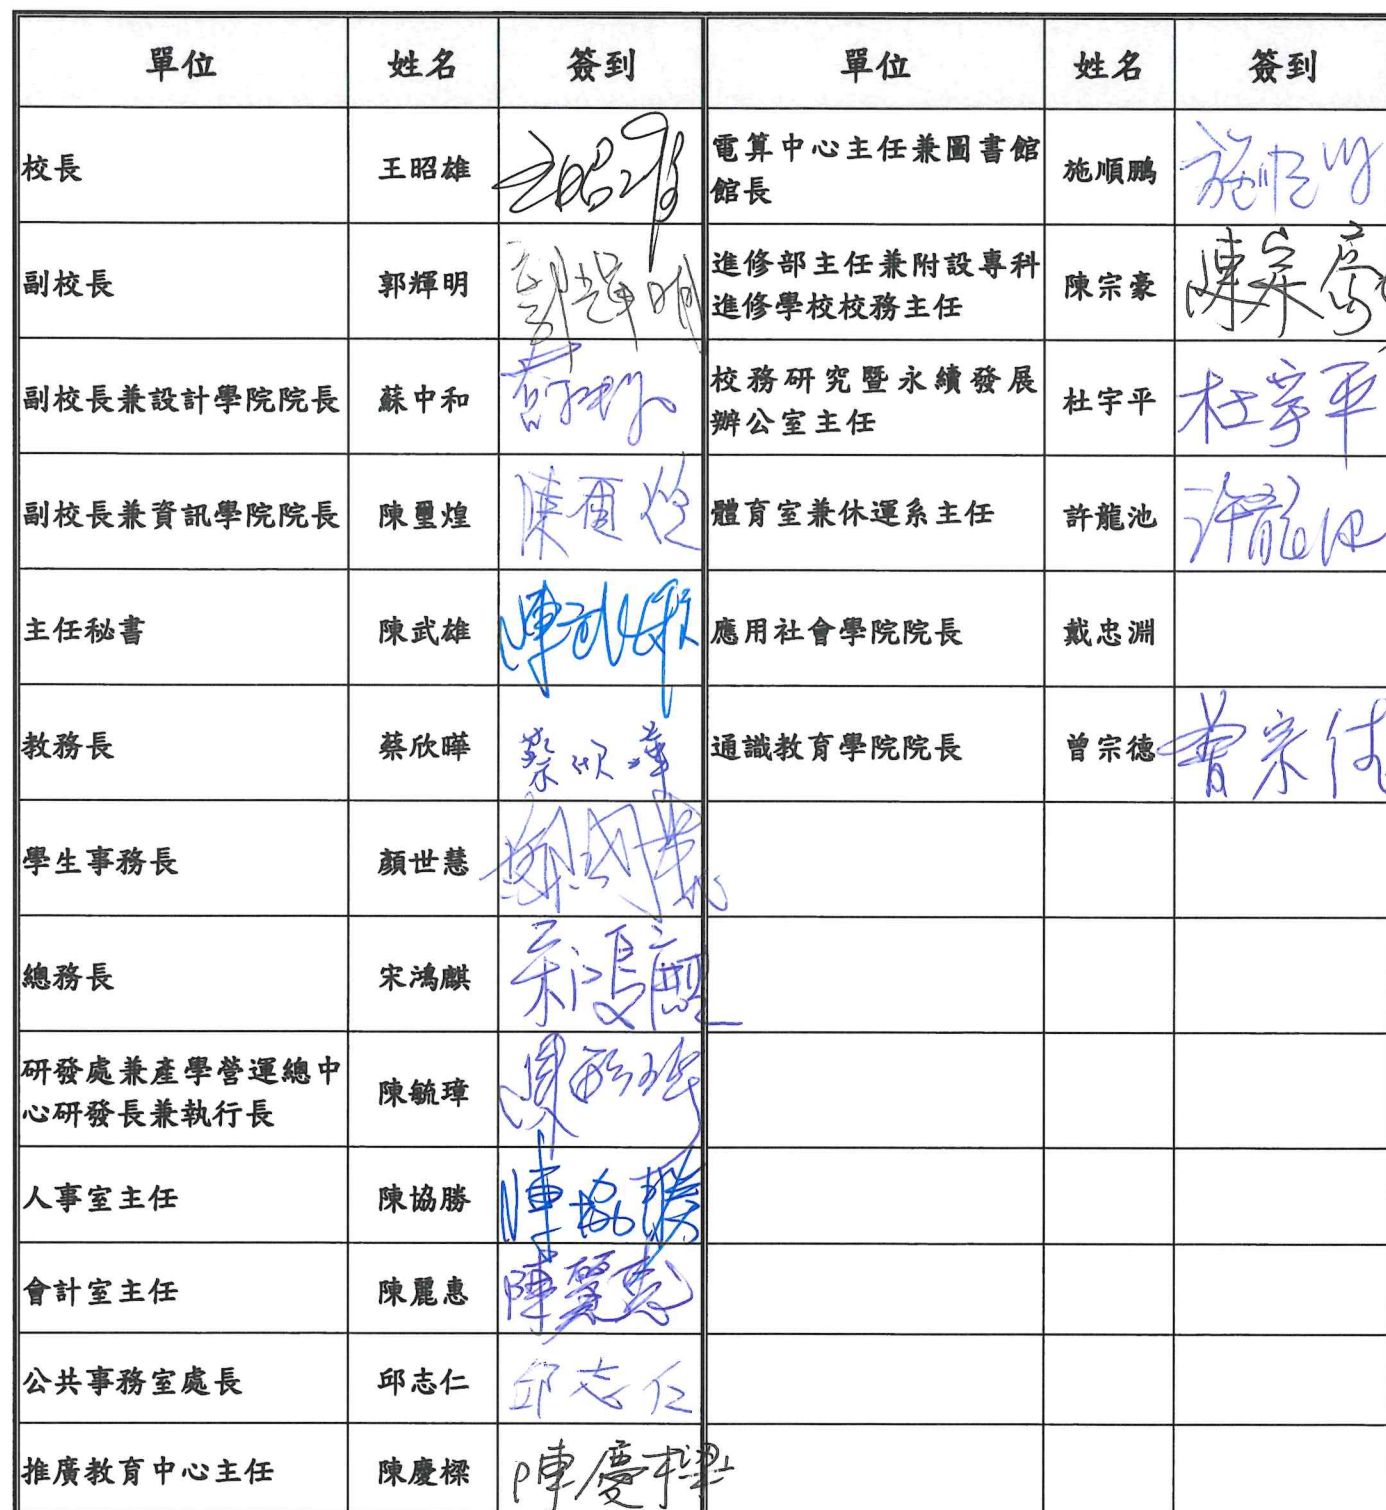 單位 姓名 簽到 單位 姓名 簽到
校長 王昭雄 王昭雄
電算中心主任兼圖書館
館長 施順鵬
副校長 郭輝明 郭輝明
進修部主任兼附設專科
進修學校校務主任 陳宗豪 陳宗豪
副校長兼設計學院院長 蘇中和
校務研究暨永續發展
辦公室主任 杜宇平 杜宇平
副校長兼資訊學院院長 陳璽煌
體育室兼休運系主任 許龍池 許龍池
主任秘書 陳武雄 陳武雄
應用社會學院院長 戴忠淵
教務長 蔡欣曄 蔡欣曄
通識教育學院院長 曾宗德 曾宗德
學生事務長 顏世慧
總務長 宋鴻麒 宋鴻麒
研發處兼產學營運總中
心研發長兼執行長 陳毓璋 陳毓璋
人事室主任 陳協勝 陳協勝
會計室主任 陳麗惠 陳麗惠
公共事務室處長 邱志仁 邱志仁
推廣教育中心主任 陳慶樑 陳慶樑